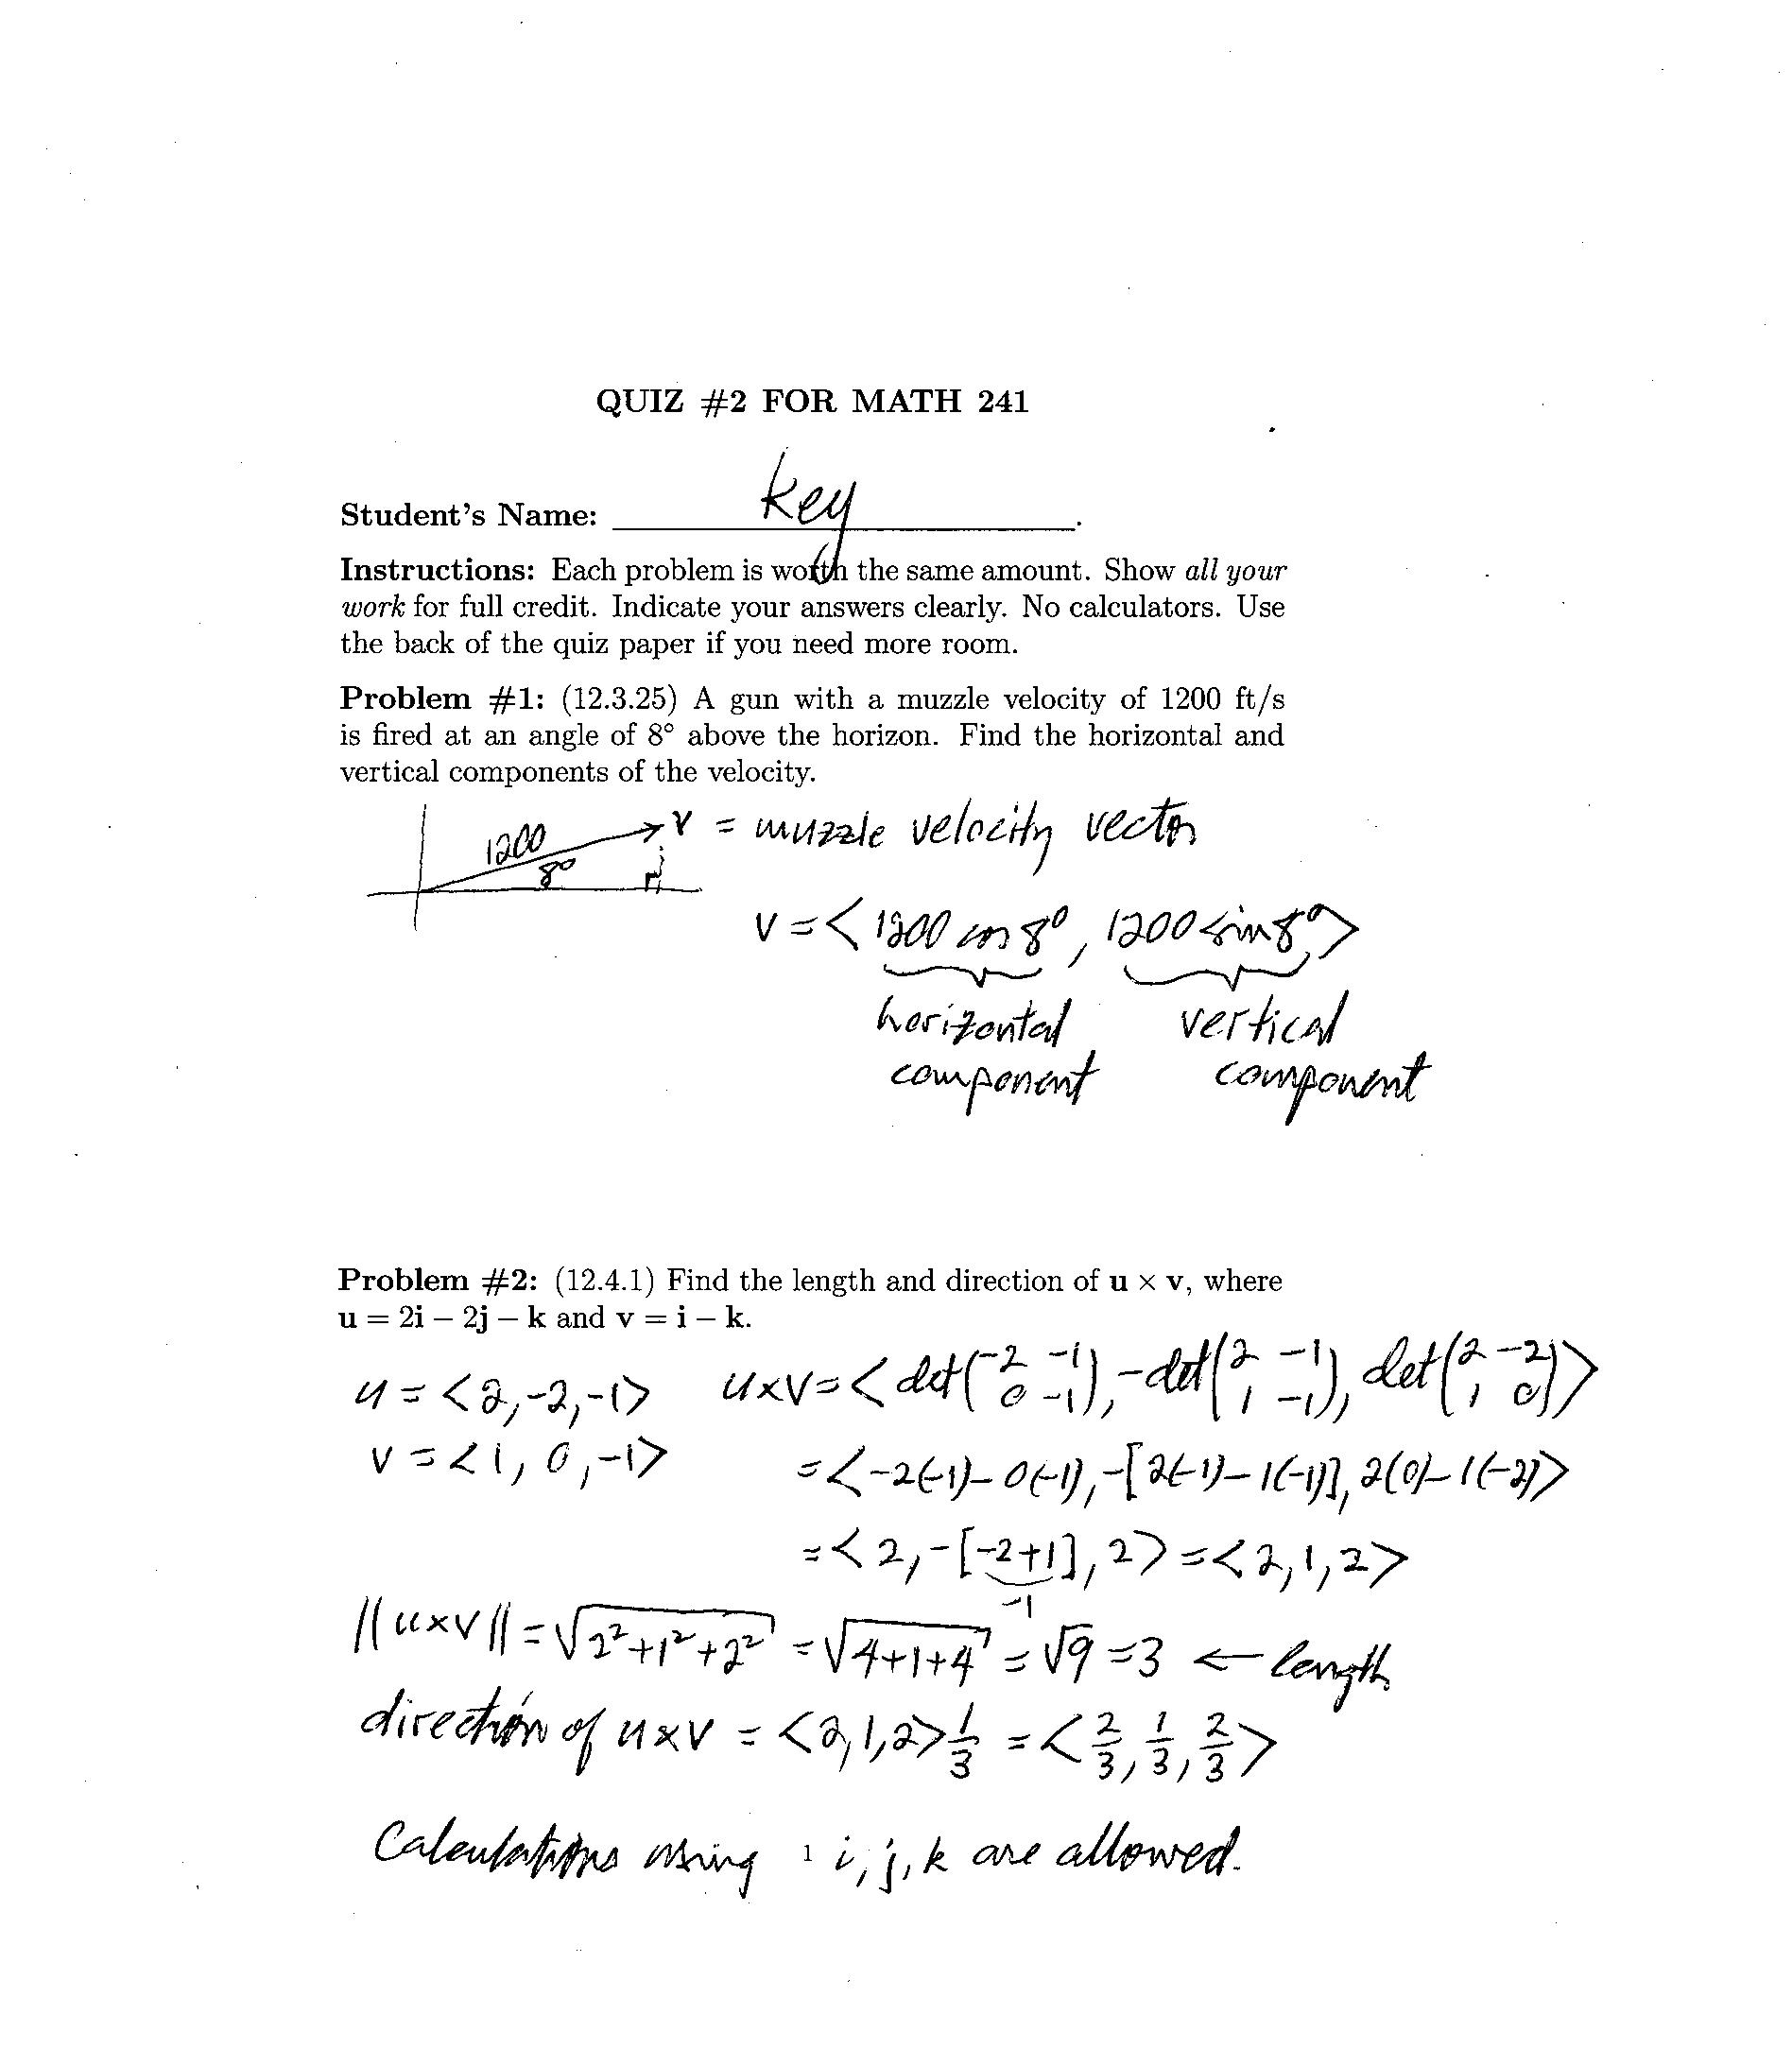 QUIZ #2 FOR MATH 241
Student's Name: key.
Instructions: Each problem is worth the same amount. Show all your
work for full credit. Indicate your answers clearly. No calculators. Use
the back of the quiz paper if you need more room.
Problem #1: (12.3.25) A gun with a muzzle velocity of 1200 ft/s
is fired at an angle of 8° above the horizon. Find the horizontal and
vertical components of the velocity.
1200 8° v = muzzle velocity vector
v = < 1200 cos 8°, 1200 sin 8° >
horizontal vertical
component component
Problem #2: (12.4.1) Find the length and direction of u × v, where
u = 2i − 2j − k and v = i − k.
u = <2, -2, -1> u×v = < det(-2 -1; 0 -1), -det(2 -1; 1 -1), det(2 -2; 1 0) >
v = <1, 0, -1> = <-2(-1) - 0(-1), -[2(-1) - 1(-1)], 2(0) - 1(-2)>
= <2, -[-2+1], 2> = <2, 1, 2>
-1
||u×v|| = √2²+1²+2² = √4+1+4 = √9 = 3 ← length
direction of u×v = <2, 1, 2> 1/3 = <2/3, 1/3, 2/3>
Calculations using i, j, k are allowed.
1